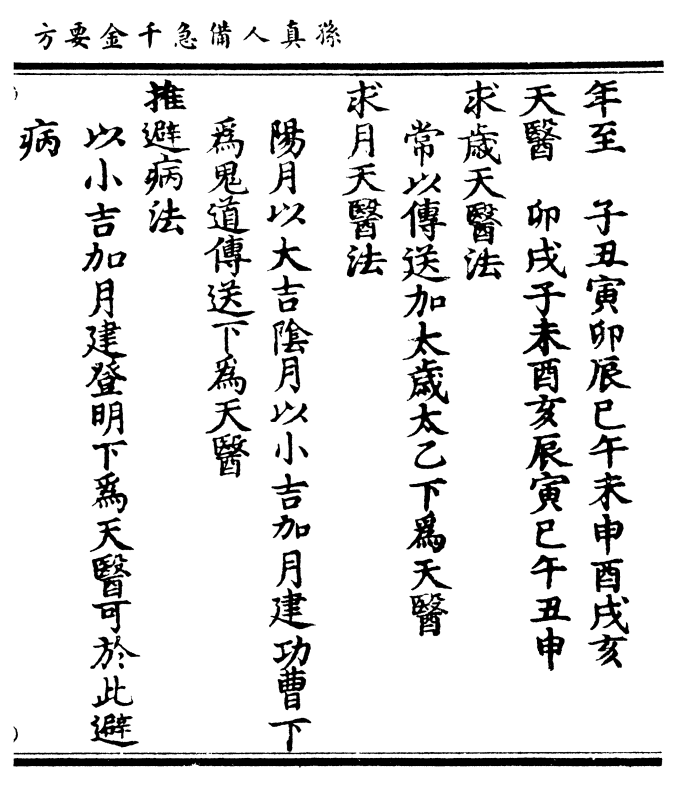 孫真人備急千金要方
年至　子丑寅卯辰巳午未申酉戌亥
天醫　卯戌子未酉亥辰寅巳午丑申
求歲天醫法
常以傳送加太歲太乙下爲天醫
求月天醫法
陽月以大吉陰月以小吉加月建功曹下
爲鬼道傳送下爲天醫
推避病法
以小吉加月建登明下爲天醫可於此避
病